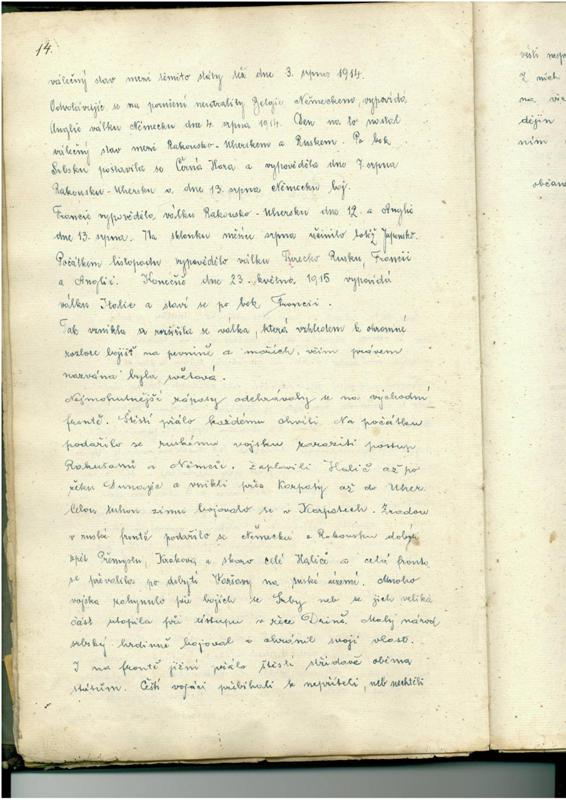 14.
válečný stav mezi těmito státy též dne 3. srpna 1914.
Odvolávajíc se na porušení neutrality Belgie Německem, vypovídá
Anglie válku Německu dne 4. srpna 1914. Den na to nastal
válečný stav mezi Rakousko-Uherskem a Ruskem. Po bok
Srbsku postavila se Černá Hora a vypověděla dne 7. srpna
Rakousku-Uhersku a dne 13. srpna Německu boj.
Francie vypověděla válku Rakousko-Uhersku dne 12. a Anglie
dne 13. srpna. Na sklonku měsíce srpna učinilo totéž Japonsko.
Počátkem listopadu vypovědělo válku Turecko Rusku Francii
a Anglii. Konečně dne 23. května 1915 vypovídá
válku Italie a staví se po bok Francii.
Tak vznikla a rozšířila se válka, která vzhledem k ohromné
rozloze bojišť na pevnině a mořích, vším právem
nazvána byla světová.
Nejmohutnější zápasy odehrávaly se na východní
frontě. Štěstí přálo každému chvíli. Na počátku
podařilo se ruskému vojsku zaraziti postup
Rakušanů a Němců. Zaplavili Halič až po
řeku Dunajec a vnikli přes Karpaty až do Uher.
Celou tuhou zimu bojovalo se v Karpatech. Zradou
v ruské frontě podařilo se Německu a Rakousku dobýti
zpět Přemyslu, Krakova a skoro celé Haliče a celá fronta
se převalila po dobytí Varšavy na ruské území. Mnoho
vojska zahynulo při bojích se Srby neb se jich veliká
část utopila při ústupu v řece Drině. Malý národ
srbský hrdinně bojoval a chránil svoji vlast.
I na frontě jižní přálo štěstí střídavě oběma
státům. Čeští vojáci přebíhali k nepříteli, neb nechtěli
věsti
Z nich
na
dějin
ním
občan